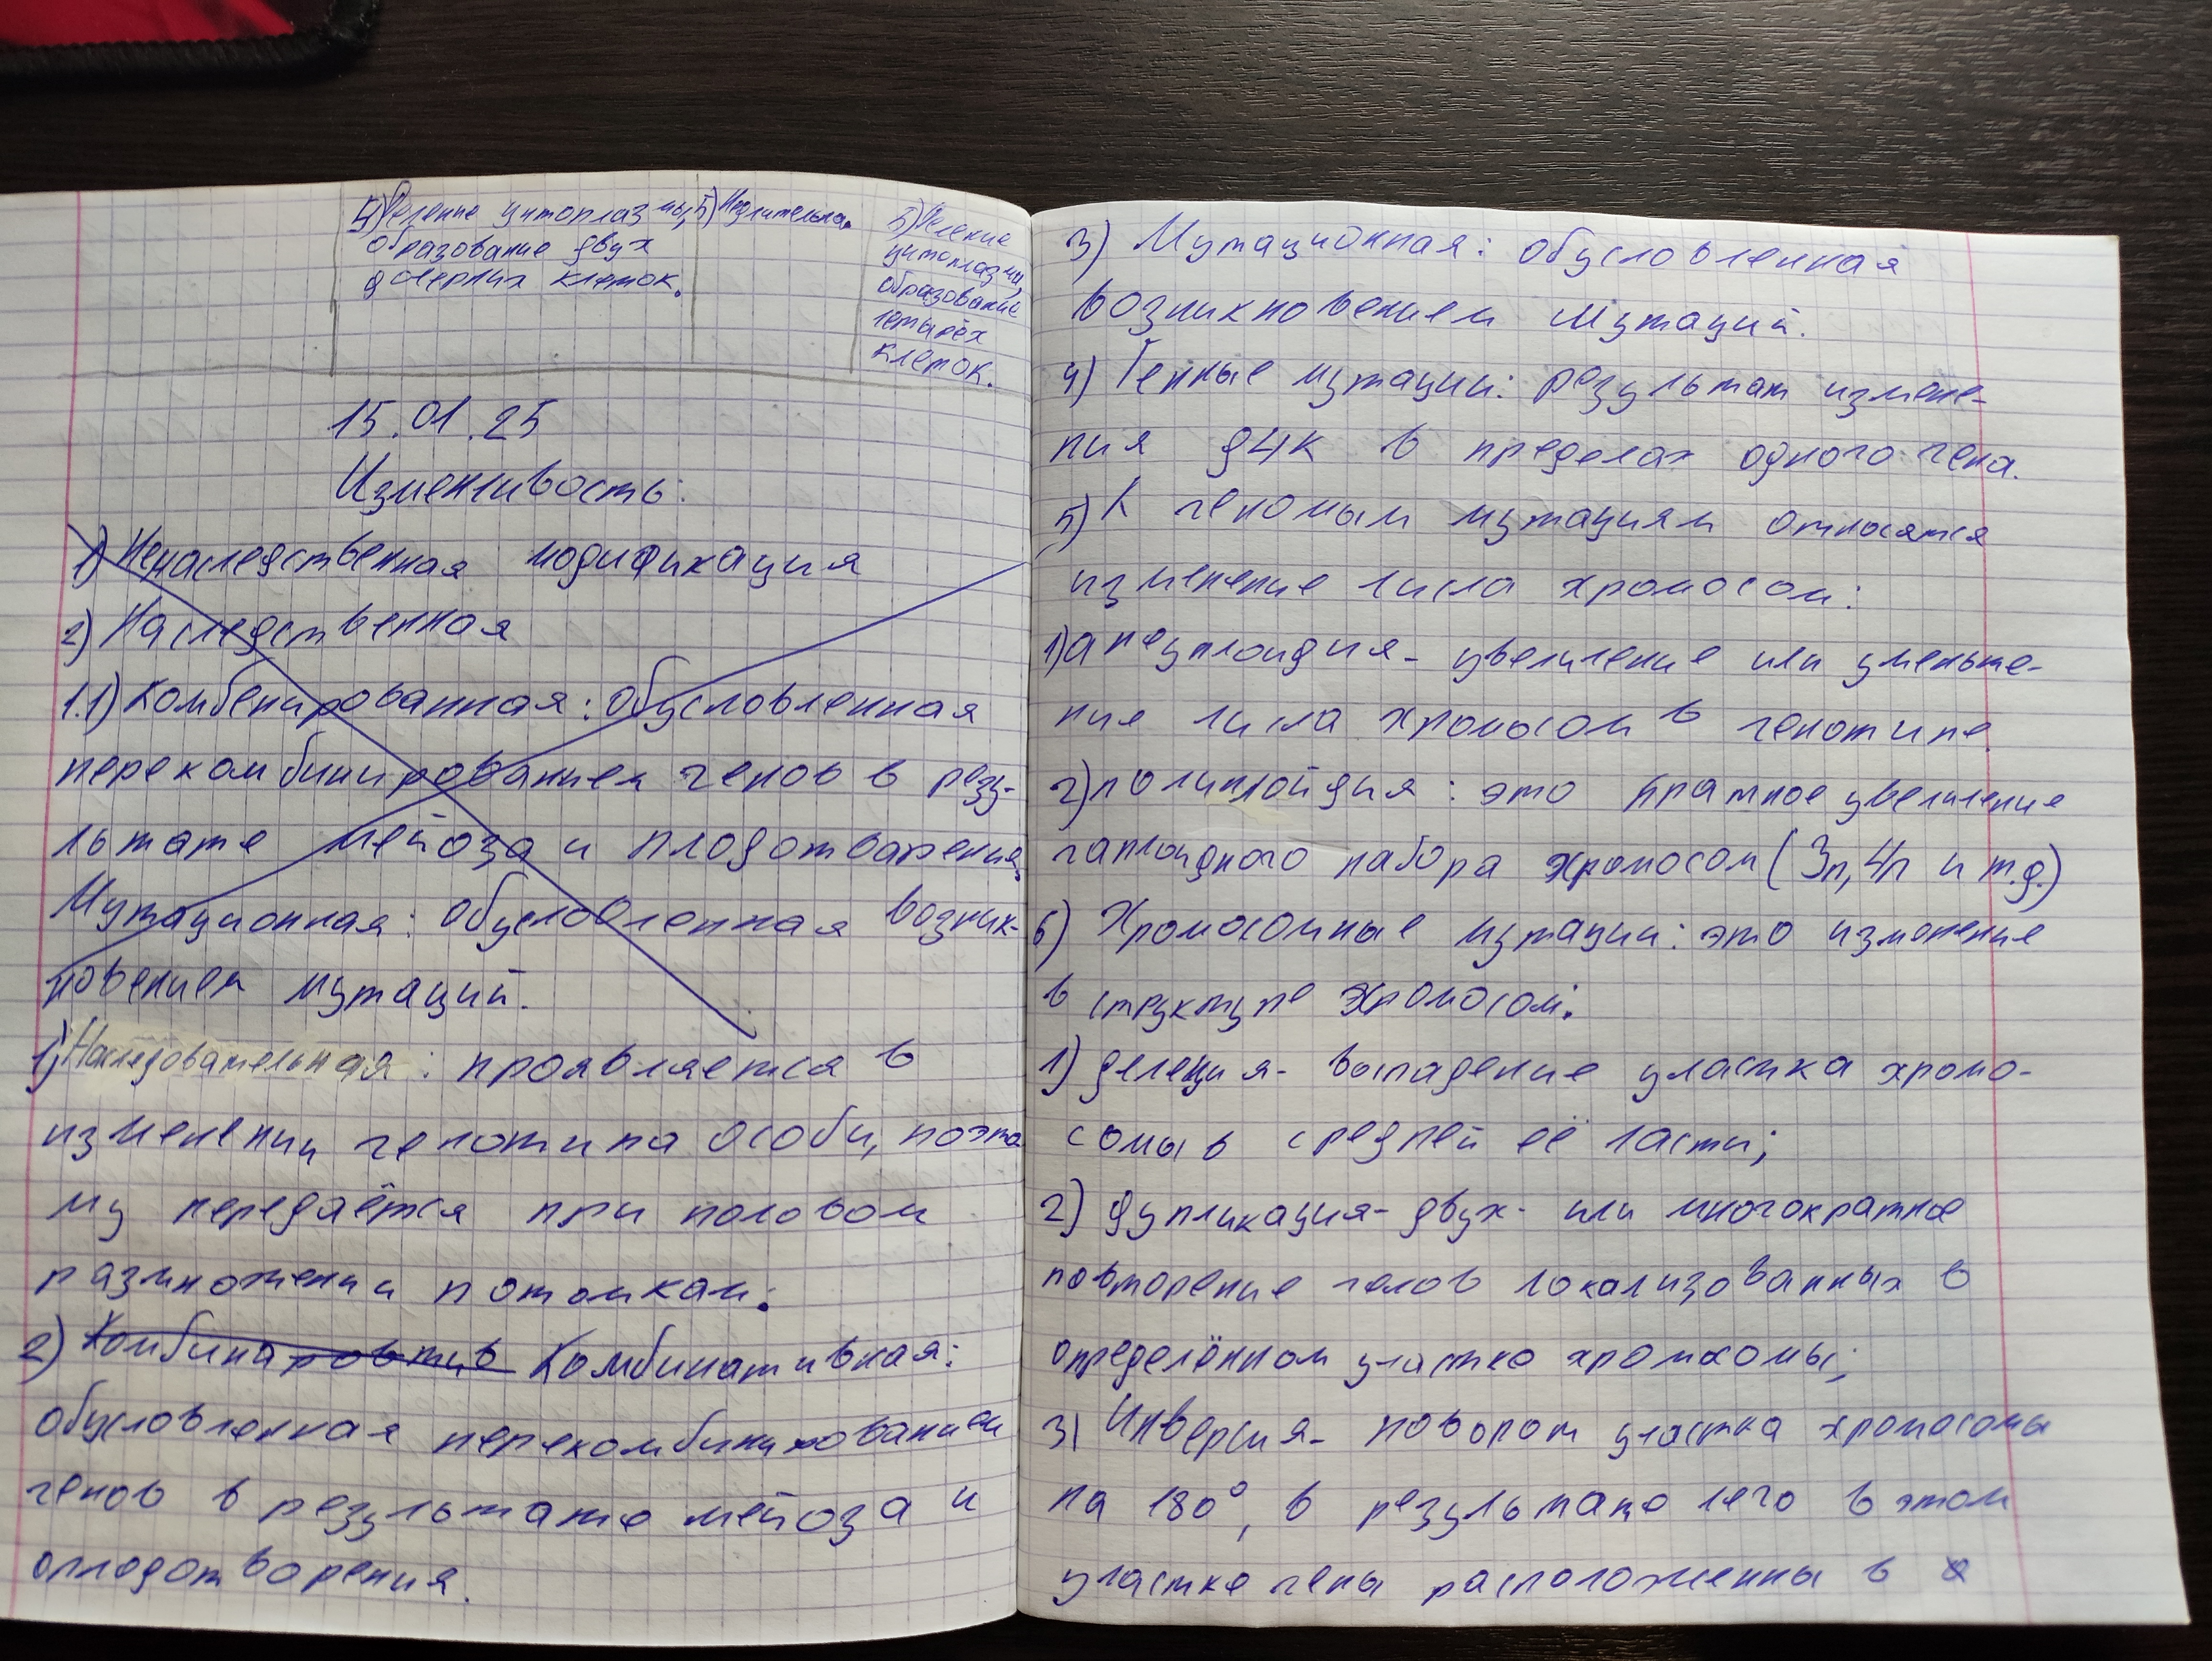 4) Деление цитоплазмы,
образование двух
дочерних клеток.
5) Недлительна.
5) Деление
цитоплазмы,
образование
четырёх
клеток.
15.01.25
Изменчивость:
1) Ненаследственная модификация
2) Наследственная
1.1) Комбенированная: обусловленная
перекомбинированием генов в резу-
льтате мейоза и плодотварения
Мутационная: обусловленная возник-
новением мутаций.
1) Наследовательная: проявляется в
изменении генотипа особи, поэто
му передаётся при половом
размножении потомкам.
2) Комбинаровтив Комбинативная:
обусловленная перекомбинированием
генов в результате мейоза и
оплодотворения.
3) Мутационная: обусловленная
возникновением мутаций.
4) Генные мутации: результат измене-
ния ДНК в пределах одного гена.
5) К геномым мутациям относятся
изменение числа хромосом:
1) анеуплоидия - увеличение или уменьше-
ние числа хромосом в генотипе
2) полиплойдия: это кратное увеличение
гаплоидного набора хромосом (3n, 4n и т.д.)
6) Хромосомные мутации: это изменение
в структуре хромосом:
1) делеция - выпадение участка хромо-
сомы в средней её части;
2) дупликация - двух- или многократное
повторение генов локализованных в
определённом участке хромосомы;
3) Инверсия - поворот участка хромосомы
на 180°, в результате чего в этом
участке гены расположенны в